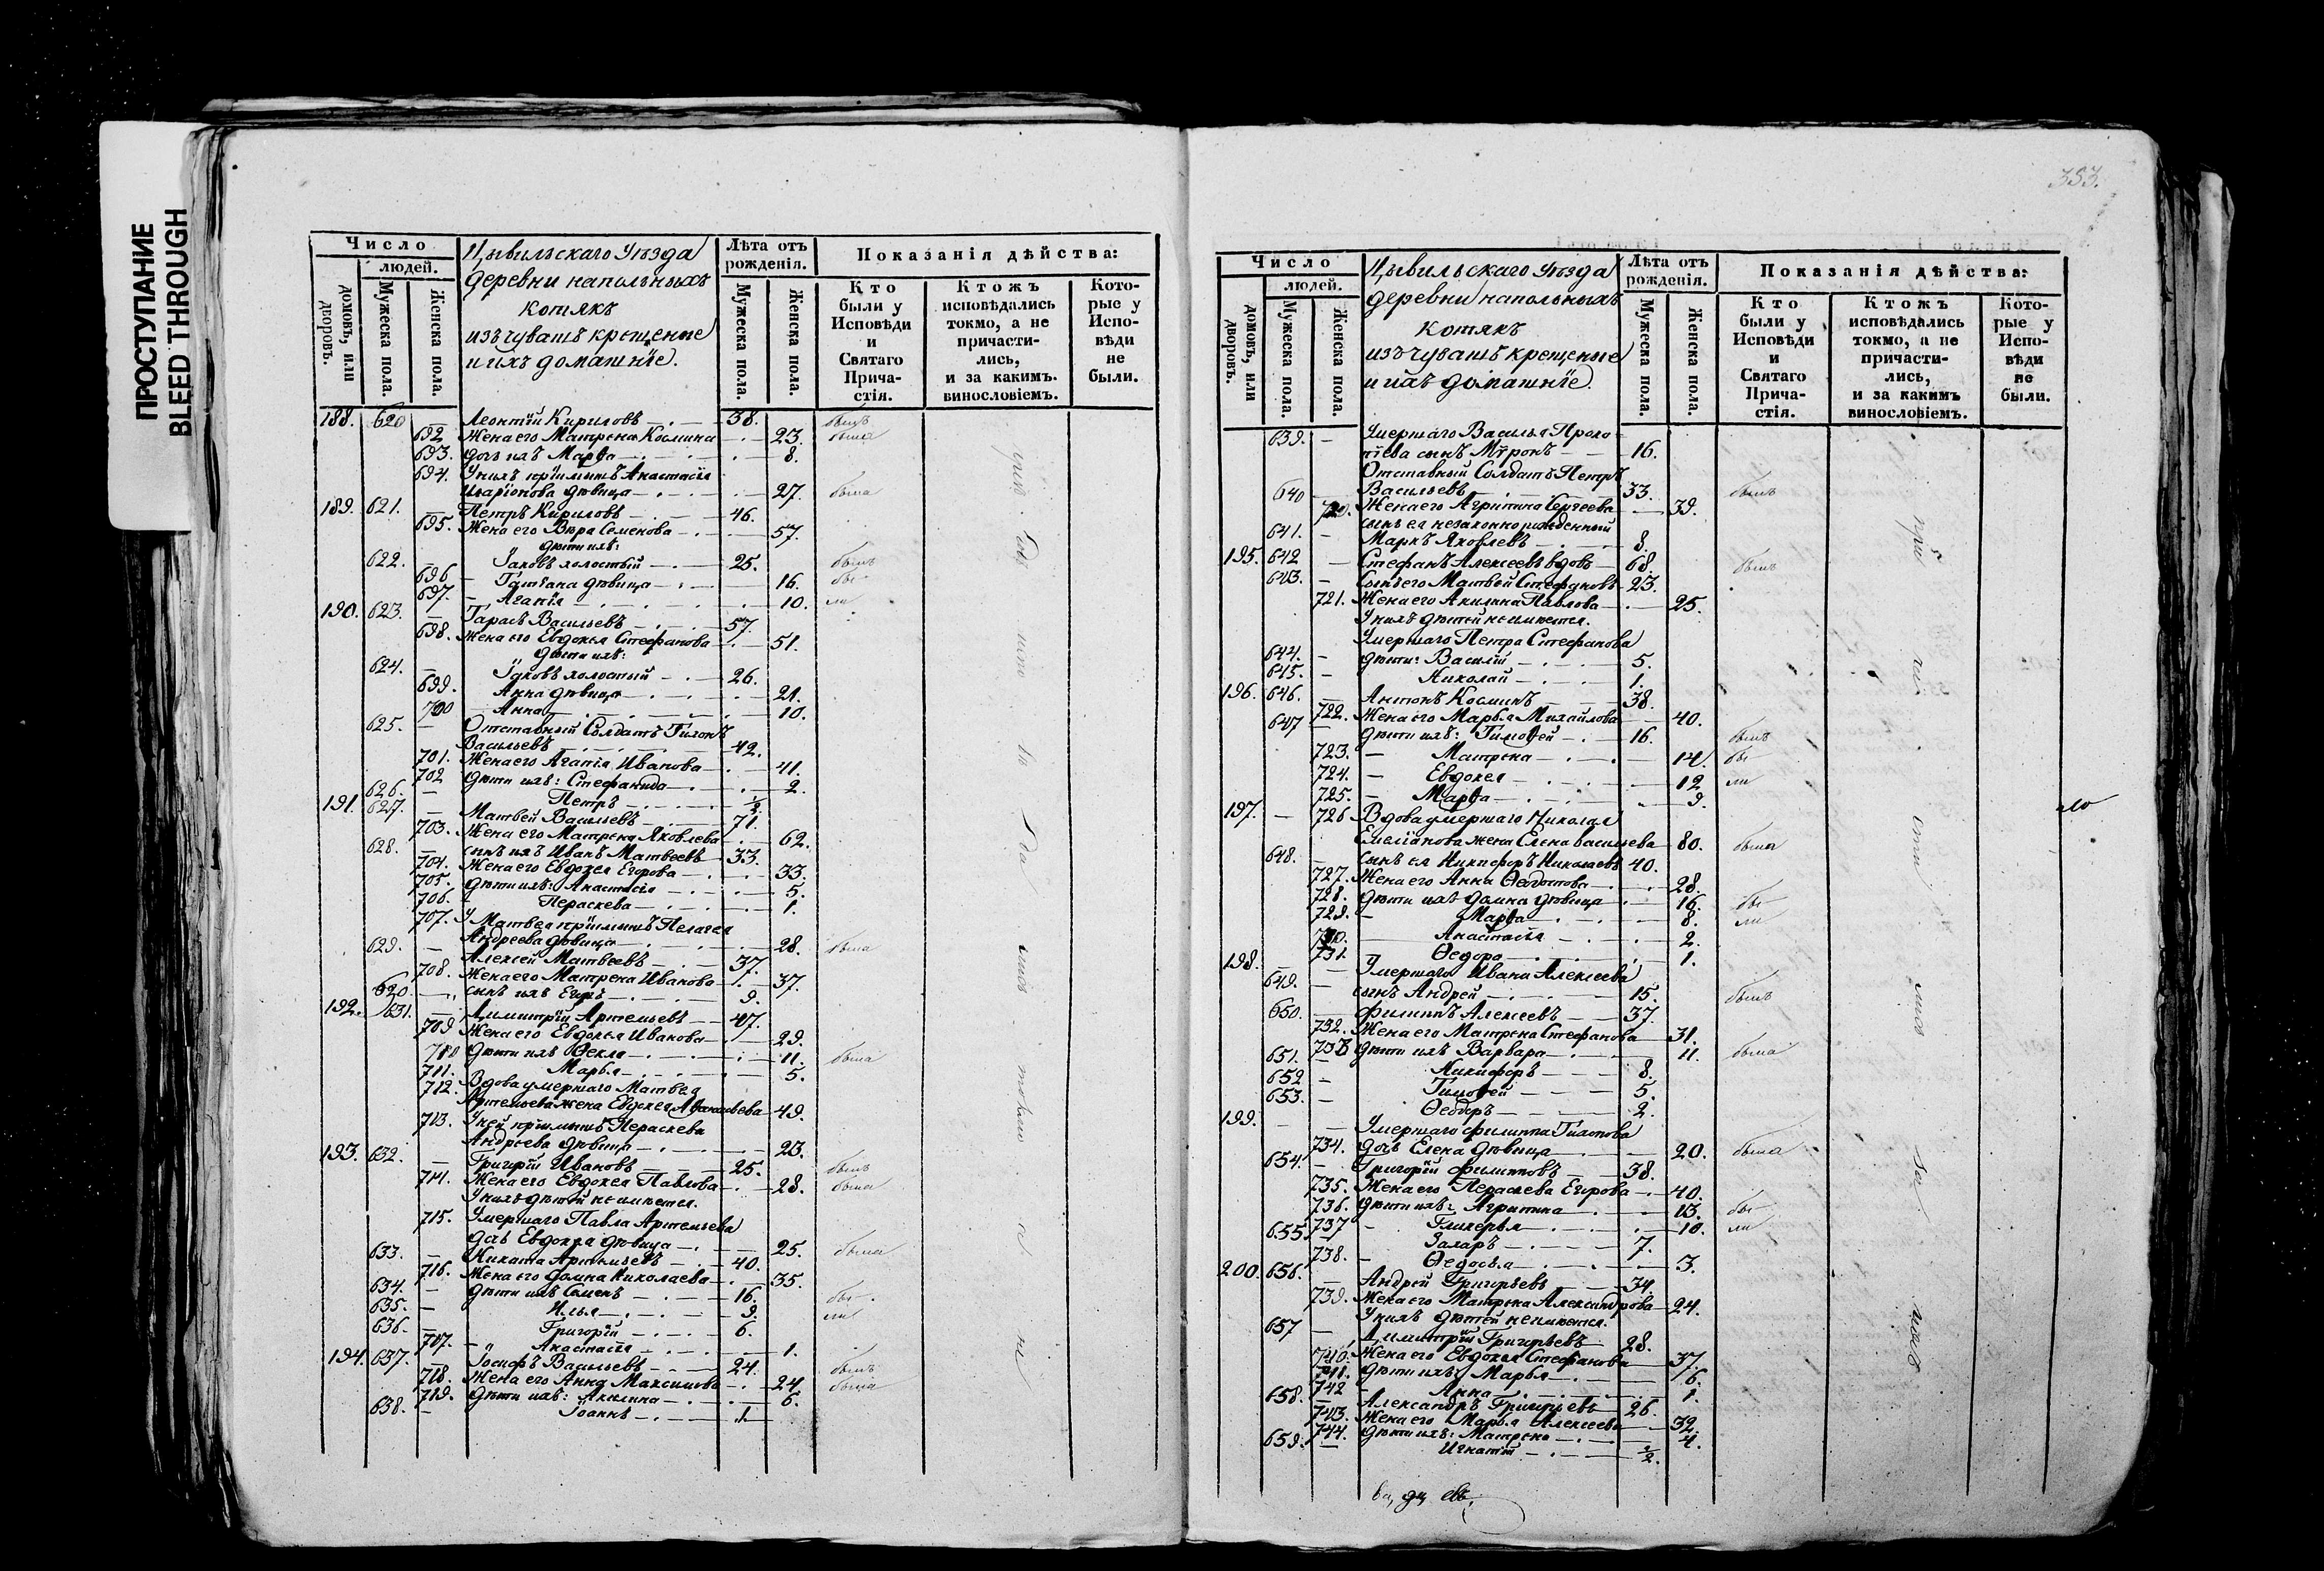 ПРОСТУПАНИЕ
BLEED THROUGH
353.
Число
людей.
домовъ, или дворовъ.
Мужеска пола.
Женска пола.
Цывильскаго Уѣзда
деревни напольныхъ
Котякъ
изъ чувашъ крещеные
и ихъ домашнїе.
Лѣта отъ рожденія.
Мужеска пола.
Женска пола.
Показанія дѣйства:
Кто были у Исповѣди и Святаго Прича-стія.
Ктожъ исповѣдались токмо, а не причасти-лись, и за какимъ. винословіемъ.
Кото-рые у Испо-вѣди не были.
188. 620 — Леонтїй Кириловъ — 38. былъ
692 Жена его Матрена Космина — 23. была
693. дочь ихъ Марѳа — 8.
694. У нихъ прїимышъ Анастасїя
Иларїонова дѣвица — 27. была
189. 621. — Петръ Кириловъ — 46.
695. Жена его Вѣра Семенова — 57.
дѣти ихъ:
622. — Іаковъ холостый — 25. былъ
696 — Татїана дѣвица — 16. бы
697. — Агапїя — 10. ли
190. 623. — Тарасъ Васильевъ — 57.
698. Жена его Евдокья Стефанова — 51.
дѣти ихъ:
624. — Іаковъ холостый — 26.
699. Анна дѣвица — 21.
700 — Анна — 10.
625. — Отставный Солдатъ Тихонъ
Васильевъ — 42.
701. Жена его Агапїя Иванова — 41.
702 дѣти ихъ: Стефанида — 2.
626. — Петръ — 1/2.
191. 627. — Матвей Васильевъ — 71.
703. Жена его Матрена Яковлева — 62.
628. — сынъ ихъ Иванъ Матвеевъ — 33.
704. Жена его Евдокея Егорова — 33.
705. дѣти ихъ: Анастасїя — 5.
706. Пераскева — 1.
707. У Матвея прїимышъ Пелагея
Андреева дѣвица — 28. была
629. — Алексей Матвеевъ — 37.
708. Жена его Матрена Иванова — 37.
620. — сынъ ихъ Егоръ — 9.
192. 631. — Димитрїй Артемьевъ — 47.
709 Жена его Евдокья Иванова — 29.
710 дѣти ихъ Ѳекла — 11. была
711. Марья — 5.
712. Вдова умершаго Матвея
Артемьева жена Евдокея Аѳанасьева — 49.
713. У ней прїимышъ Пераскева
Андреева дѣвица — 23.
193. 632. — Григорїй Ивановъ — 25. былъ
714. Жена его Евдокея Павлова — 28. была
У нихъ дѣтей не имѣется.
715. Умершаго Павла Артемьева
дочь Евдокея дѣвица — 25. была
633. — Никита Артемьевъ — 40.
716. Жена его Домна Николаева — 35.
634. — дѣти ихъ Семенъ — 16. бы
635. — Илья — 9. ли
636. — Григорїй — 6.
717. — Анастасїя — 1.
194. 637. — Іосифъ Васильевъ — 24. былъ
718. Жена его Анна Максимова — 24. была
719. дѣти ихъ: Акилина — 6.
638. — Іоаннъ — 1.
Число
людей.
домовъ, или дворовъ.
Мужеска пола.
Женска пола.
Цывильскаго Уѣзда
деревни напольныхъ
Котякъ
изъ чувашъ крещеные
и ихъ домашнїе.
Лѣта отъ рожденія.
Мужеска пола.
Женска пола.
Показанія дѣйства:
Кто были у Исповѣди и Святаго Прича-стія.
Ктожъ исповѣдались токмо, а не причасти-лись, и за какимъ винословіемъ.
Кото-рые у Испо-вѣди не были.
639. — Умершаго Василья Проко-
пїева сынъ Мѵронъ — 16.
Отставный Солдатъ Петръ
640 — Васильевъ — 33. былъ
720. Жена его Агрипина Сергеева — 39.
сынъ ея незаконнорожденный
641. — Маркъ Яковлевъ — 8.
195. 642 — Стефанъ Алексеевъ вдовъ — 68. былъ
643. — Сынъ его Матвей Стефановъ 23.
721. Жена его Акилина Павлова — 25.
У нихъ дѣтей не имѣется.
Умершаго Петра Стефанова
644. — дѣти: Василїй — 5.
645. — Николай — 1.
196. 646. — Антонъ Косминъ — 38.
722. Жена его Марья Михайлова — 40.
647 — дѣти ихъ: Тимоѳей — 16. былъ
723. — Матрена — 14. бы
724. — Евдокея — 12 ли
725. — Марѳа — 9.
197. — 726 Вдова умершаго Николая
Емелїанова жена Елена Васильева — 80. была
648. — сынъ ея Никифоръ Николаевъ 40.
727. Жена его Анна Ѳедотова — 28.
728. дѣти ихъ Домна дѣвица — 16. бы
729. — Марѳа — 8. ли
730. — Анастасїя — 2.
731. — Ѳедора — 1.
198. — Умершаго Ивана Алексеева
649. — сынъ Андрей — 15. былъ
650. — Филиппъ Алексеевъ — 37.
732. Жена его Матрена Стефанова — 31.
733 дѣти ихъ Варвара — 11. была
651. — Никифоръ — 8.
652 — Тимоѳей — 5.
653. — Ѳеодоръ — 2.
199. — Умершаго Филиппа Тихонова
734. дочь Елена дѣвица — 20. была
654. — Григорїй Филипповъ — 38.
735. Жена его Пераскева Егорова — 40.
736. дѣти ихъ: Агрипина — 13. бы
737 — Гликерья — 10. ли
655 — Захаръ — 7.
738. — Ѳедосья — 3.
200. 656. — Андрей Григорьевъ — 34.
739. Жена его Матрена Александрова — 24.
У нихъ дѣтей не имѣется.
657 — Димитрїй Григорьевъ — 28.
740. Жена его Евдокея Стефанова — 37.
741. дѣти ихъ: Марья — 6.
742 — Анна — 1.
658. — Александръ Григорьевъ — 26.
743. Жена его Марья Алексеева — 32.
744. дѣти ихъ: Матрена — 4.
659. — Игнатїй — 1/2.